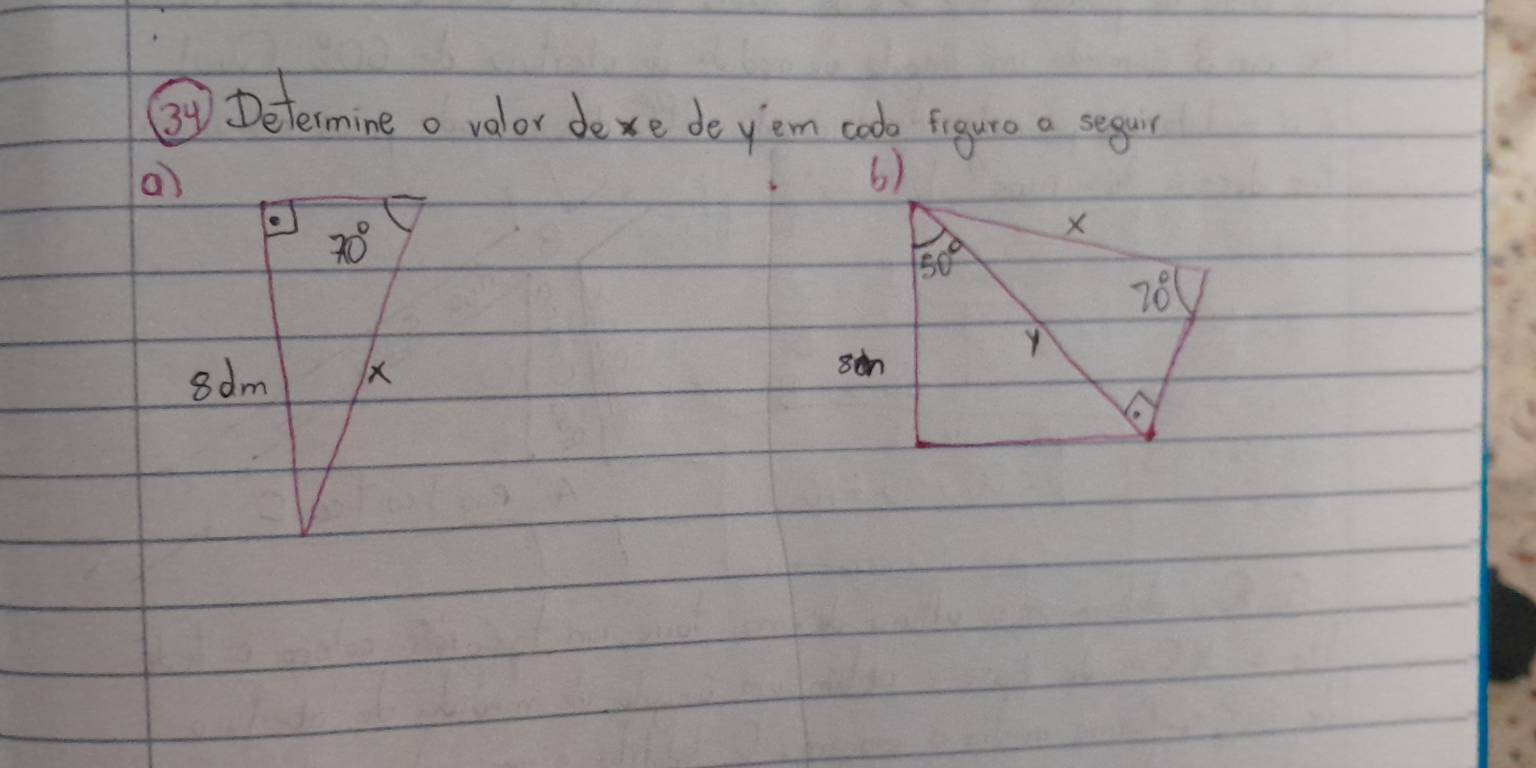 34 Determine o valor de x e de y em cada figura a seguir
a) b)
70° 50° x 70°
8dm x y